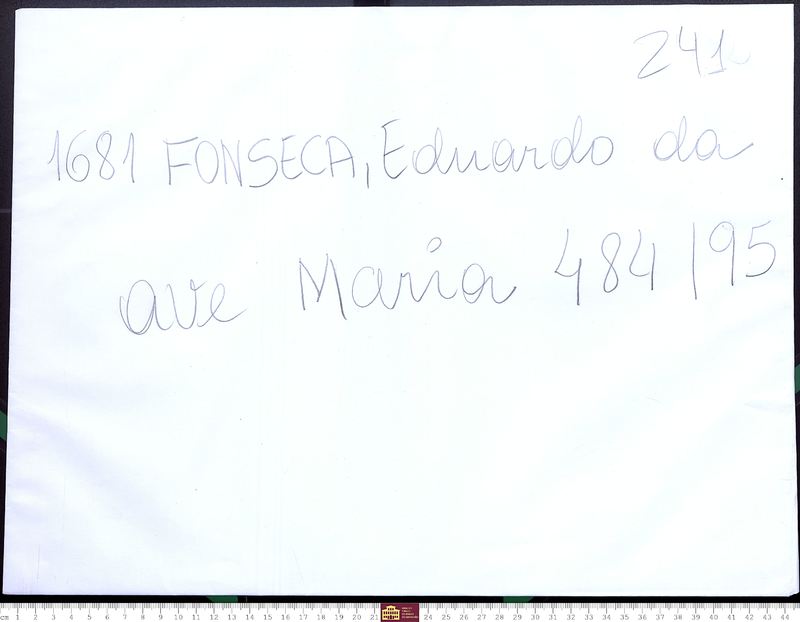 241
1681 FONSECA, Eduardo da
ave Maria 484/95
cm 1 2 3 4 5 6 7 8 9 10 11 12 13 14 15 16 17 18 19 20 21 24 25 26 27 28 29 30 31 32 33 34 35 36 37 38 39 40 41 42 43 44